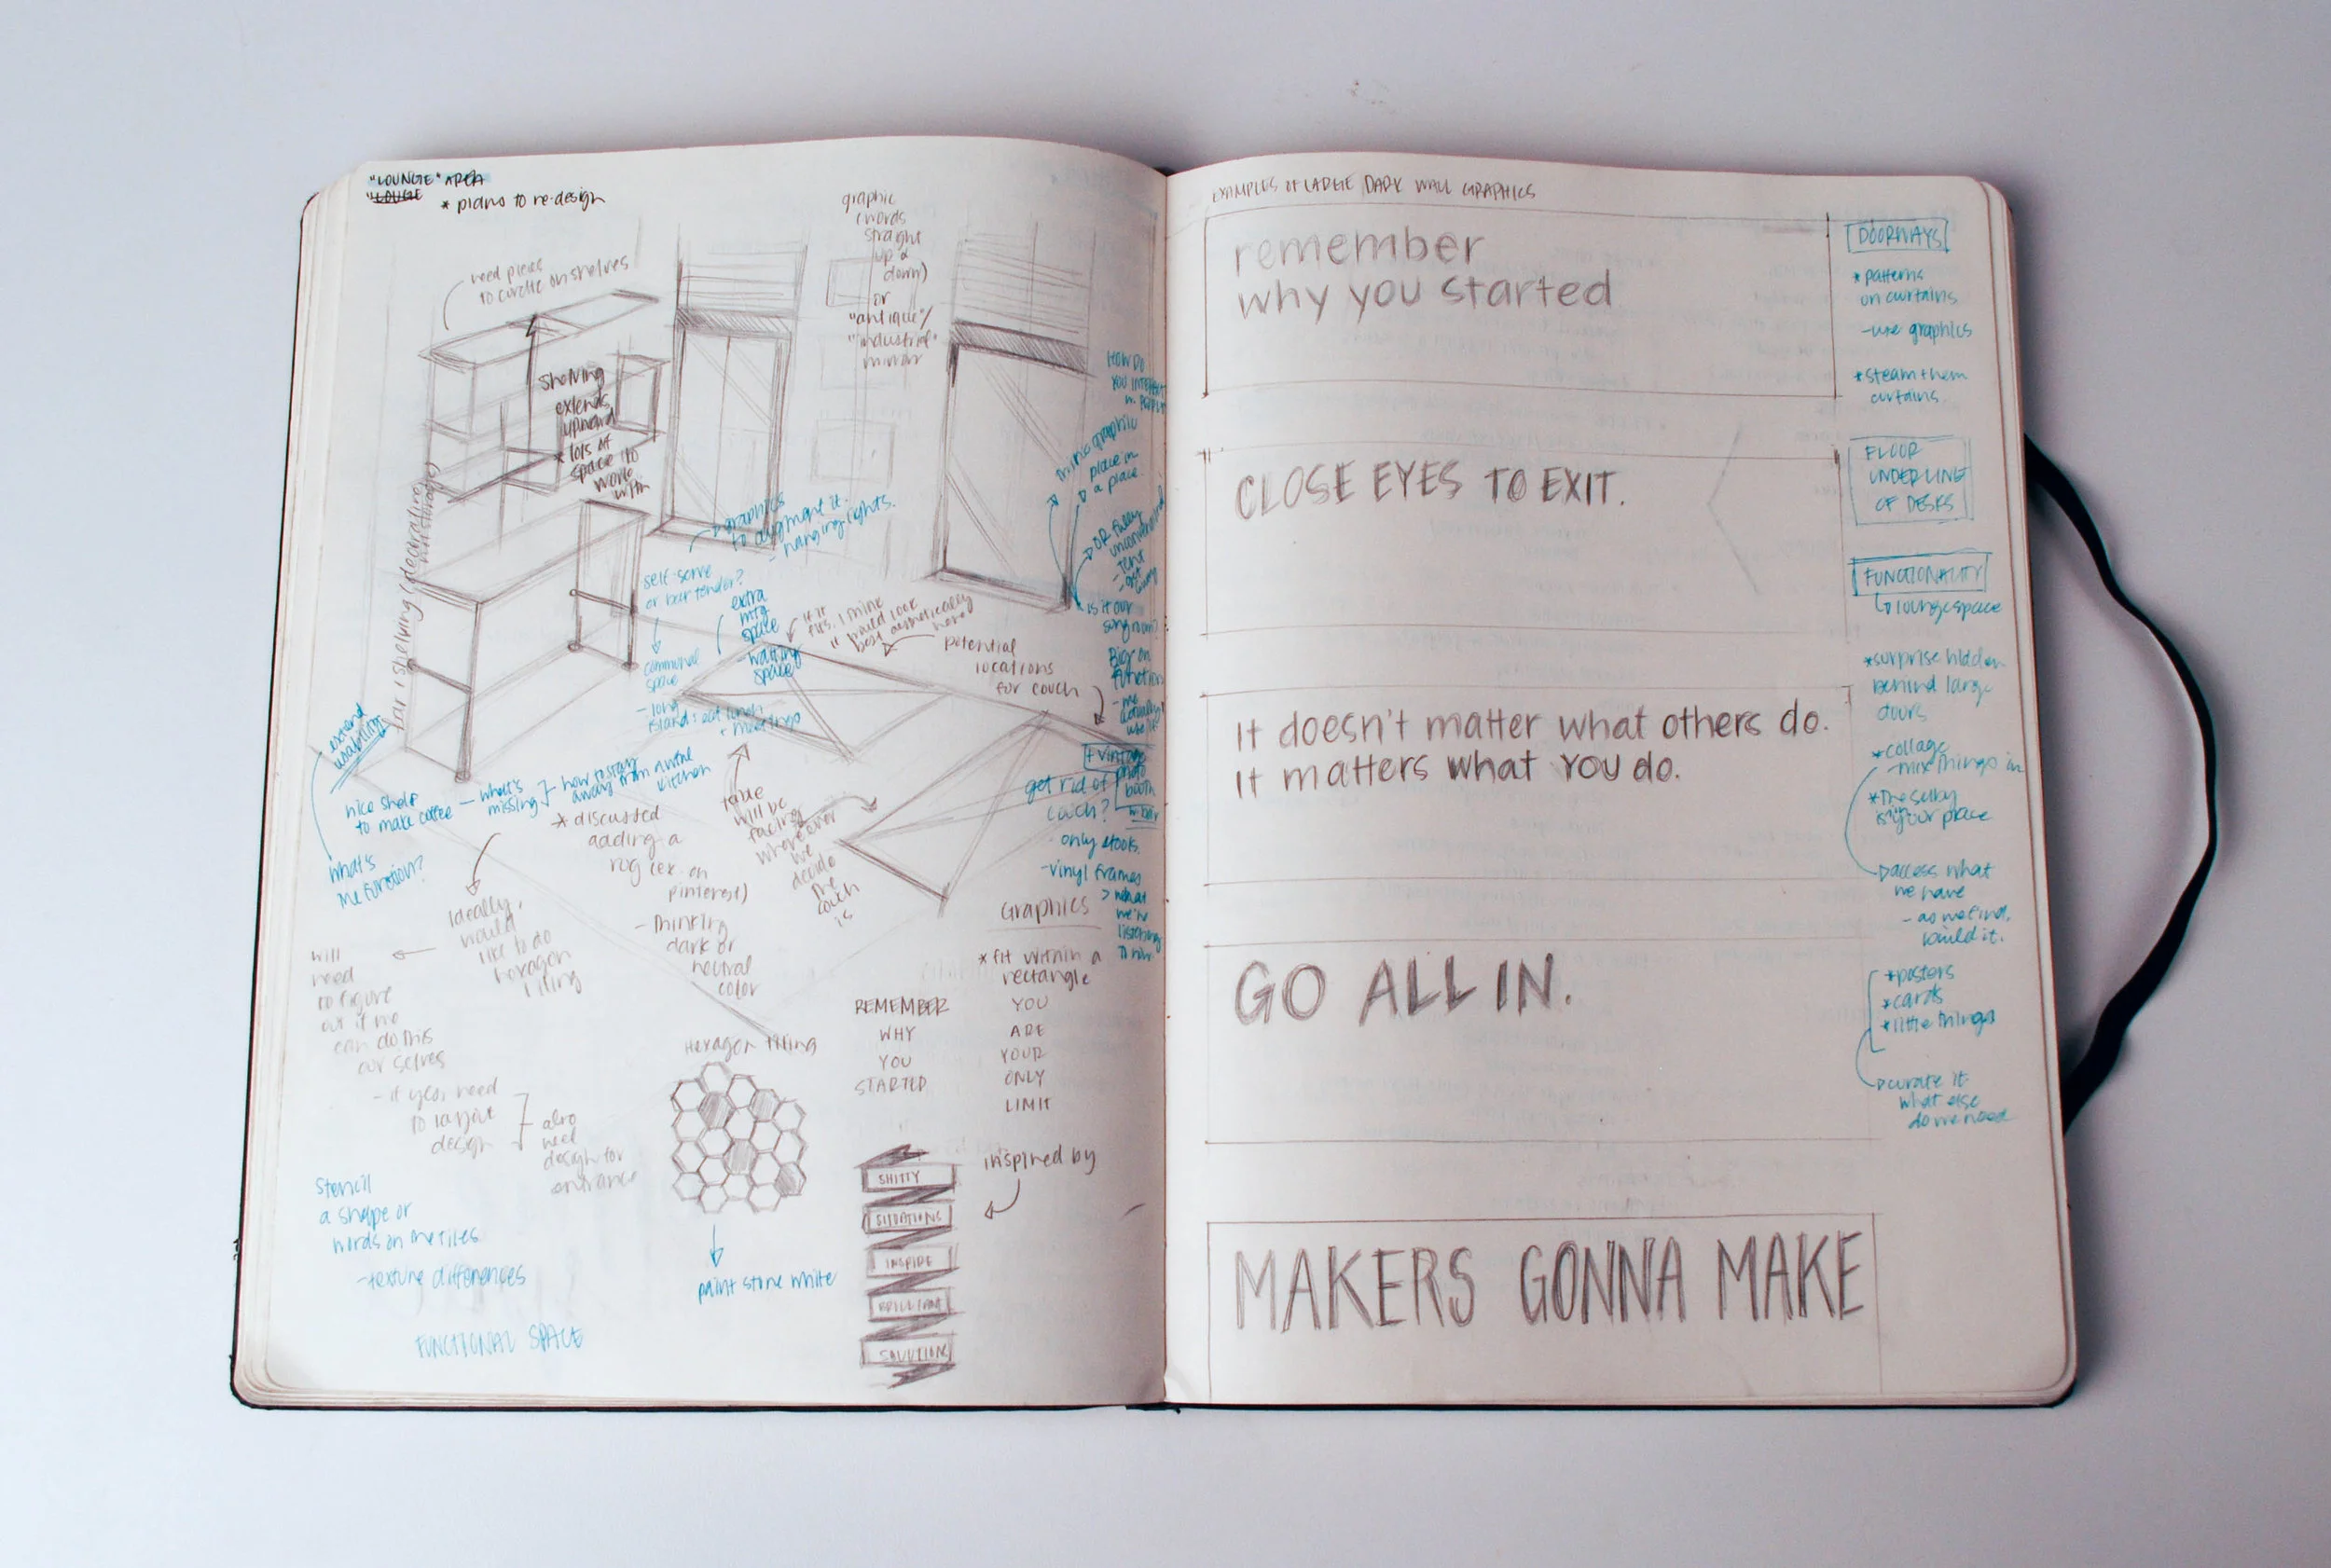 "LOUNGE" AREA
"LOUGE
* plans to re-design
need pieces
to curate on shelves
shelving
extends
upward
* lots of
space to
work
with
graphic
(words
straight
up &
down)
or
"antique"/
"industrial"
mirror
HOW DO
YOU
mini graphic
place in
a place.
OR fully
- tent
is it our
song room?
Big on
function
- we
actually
use it.
graphics
to augment it.
- hanging lights.
self-serve
or bar tender?
communal
space
- long
island: eat lunch
+ meetings
extra
mtg
space
- waiting
space
if it
fits, I think
it would look
best aesthetically
here
potential
locations
for couch
bar is shelving (decorating
- extend
usability
what's
the function?
nice shelf
to make coffee
- what's
missing
how to stay
away from
kitchen
* discussed
adding a
rug (ex. on
pinterest)
- thinking
dark or
neutral
color
table
will be
facing
wherever
we
decide
the
couch
is
+ vintage
photo
booth
get rid of
couch?
- only stools.
- vinyl frames
> what
we're
listening
to now
ideally,
would
like to do
hexagon
tiling
will
need
to figure
out if we
can do this
ourselves
- if yes, need
to layout
design
also
need
design for
entrance
Hexagon tiling
paint stone white
stencil
a shape or
words on the tiles
- texture differences
FUNCTIONAL SPACE
Graphics
* fit within a
rectangle
REMEMBER
WHY
YOU
STARTED
YOU
ARE
YOUR
ONLY
LIMIT
inspired by
SHITTY
SITUATIONS
INSPIRE
BRILLIANT
SOLUTIONS
EXAMPLES OF LARGE DARK WALL GRAPHICS
remember
why you started
CLOSE EYES TO EXIT.
It doesn't matter what others do.
It matters what you do.
GO ALL IN.
MAKERS GONNA MAKE
DOORWAYS
* patterns
on curtains
- use graphics
* steam them
curtains.
FLOOR
UNDERLINE
OF DESKS
FUNCTIONALITY
lounge space
* surprise hidden
behind large
doors
* collage
- mix things in
* The selby
is in your place
access what
we have
- as we find,
build it.
* posters
* cards
* little things
curate it.
what else
do we need